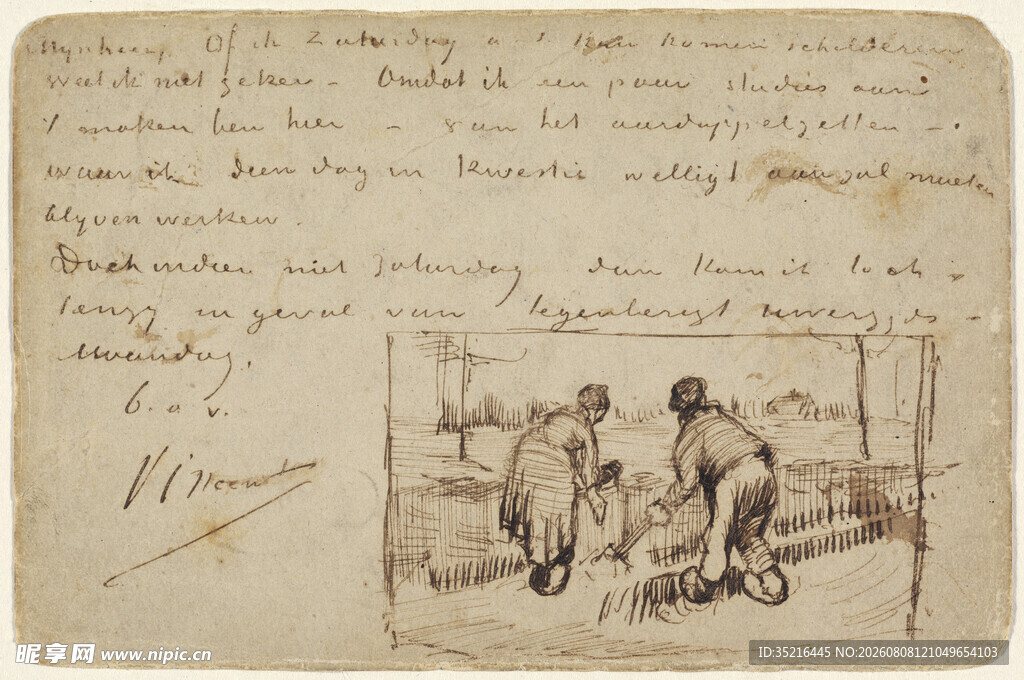 Mynheer, Of ik Zaturdag a s. kan komen schilderen
weet ik niet zeker – Omdat ik een paar studies aan
't maken ben hier – van het aardappelzetten –
waar ik dien dag in kwestie welligt aan zal moeten
blyven werken.
Doch indien niet Zaturdag dan kom ik toch
tenzy in geval van tegenberigt uwerzyds –
Maandag.
b. a. v.
Vincent
昵享网 www.nipic.cn
ID:35216445 NO:20260808121049654103